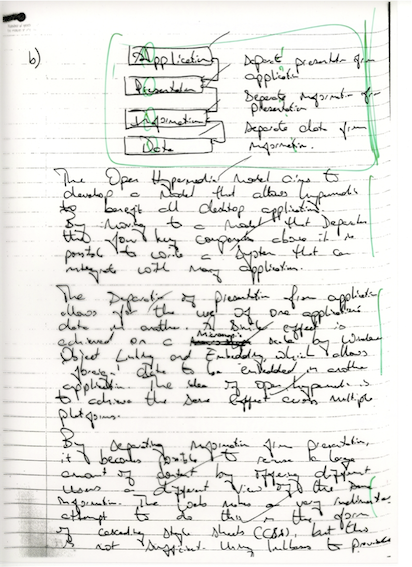 b)
Application
Presentation
Information
Data
Separate presentation from
application
Separate information from
presentation
Separate data from
information.
The Open Hypermedia model aims to
develop a model that allows hypermedia
to benefit all desktop applications.
By moving to a model that separates
the four key components above it is
possible to write a system that can
integrate with many application.
The separation of presentation from application
allows for the use of one applications
data in another. A similar effect is
achieved on a Microsoft by Windows
Object Linking and Embedding which allows
'foreign' data to be 'embedded' in another
application. The idea of open hypermedia is
to achieve the same effect across multiple
platforms.
By separating information from presentation,
it becomes possible to reuse a large
amount of content by offering different
users a different view of the same
information. The web makes a very rudimentary
attempt to do this in the form
of cascading style sheets (CSS), but this
is not sufficient. Using to provide